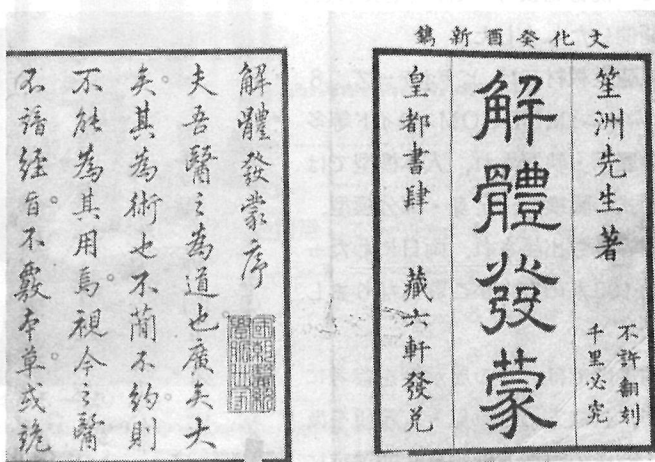 文化癸酉新鐫
笙洲先生著
不許翻刻
千里必究
解體發蒙
皇都書肆 藏六軒發兌
解體發蒙序
夫吾醫之為道也廣矣大
矣。其為術也不簡不約則
不能為其用焉視今之醫
不諳經旨。不覈本草或詭